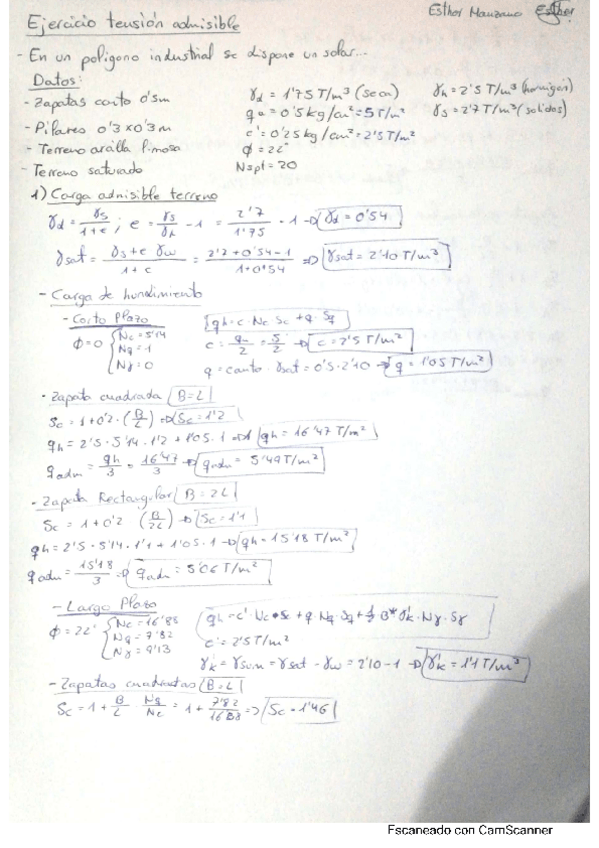 Ejercicio tensión admisible
Esther Manzano Esther
- En un poligono industrial se dispone un solar...
Datos:
- Zapatas canto 0'5m
- Pilares 0'3 x 0'3 m
- Terreno arcilla limosa
- Terreno saturado
γd = 1'75 T/m³ (seca)
qu = 0'5 kg/cm² = 5 T/m²
c' = 0'25 kg/cm² = 2'5 T/m²
Φ = 22°
Nspt = 20
γh = 2'5 T/m³ (hormigon)
γs = 2'7 T/m³ (solidos)
1) Carga admisible terreno
γd = γs / 1+e ; e = γs / γd - 1 = 2'7 / 1'75 - 1 → γd = 0'54
γsat = γs + e γw / 1+e = 2'7 + 0'54 - 1 / 1+0'54 ⇒ γsat = 2'10 T/m³
- Carga de hundimiento
- Corto Plazo
Φ = 0 { Nc = 5'14
Nq = 1
Nγ = 0
qh = c · Nc Sc + q · Sq
c = qu / 2 = 5 / 2 → c = 2'5 T/m²
q = canto · γsat = 0'5 · 2'10 → q = 1'05 T/m²
· Zapata cuadrada B=L
Sc = 1 + 0'2 · (B/L) → Sc = 1'2
qh = 2'5 · 5'14 · 1'2 + 1'05 · 1 → qh = 16'47 T/m²
qadm = qh / 3 = 16'47 / 3 → qadm = 5'49 T/m²
- Zapata Rectangular B = 2L
Sc = 1 + 0'2 (B/2L) → Sc = 1'1
qh = 2'5 · 5'14 · 1'1 + 1'05 · 1 → qh = 15'18 T/m²
qadm = 15'18 / 3 → qadm = 5'06 T/m²
- Largo Plazo
Φ = 22° { Nc = 16'88
Nq = 7'82
Nγ = 9'13
qh = c' · Nc · Sc + q Nq · Sq + ½ B* γ'k · Nγ · Sγ
c' = 2'5 T/m²
γ'k = γsum = γsat - γw = 2'10 - 1 → γ'k = 1'1 T/m³
- Zapatas cuadradas B=L
Sc = 1 + B/L · Nq/Nc = 1 + 7'82 / 16'88 ⇒ Sc = 1'46
Escaneado con CamScanner